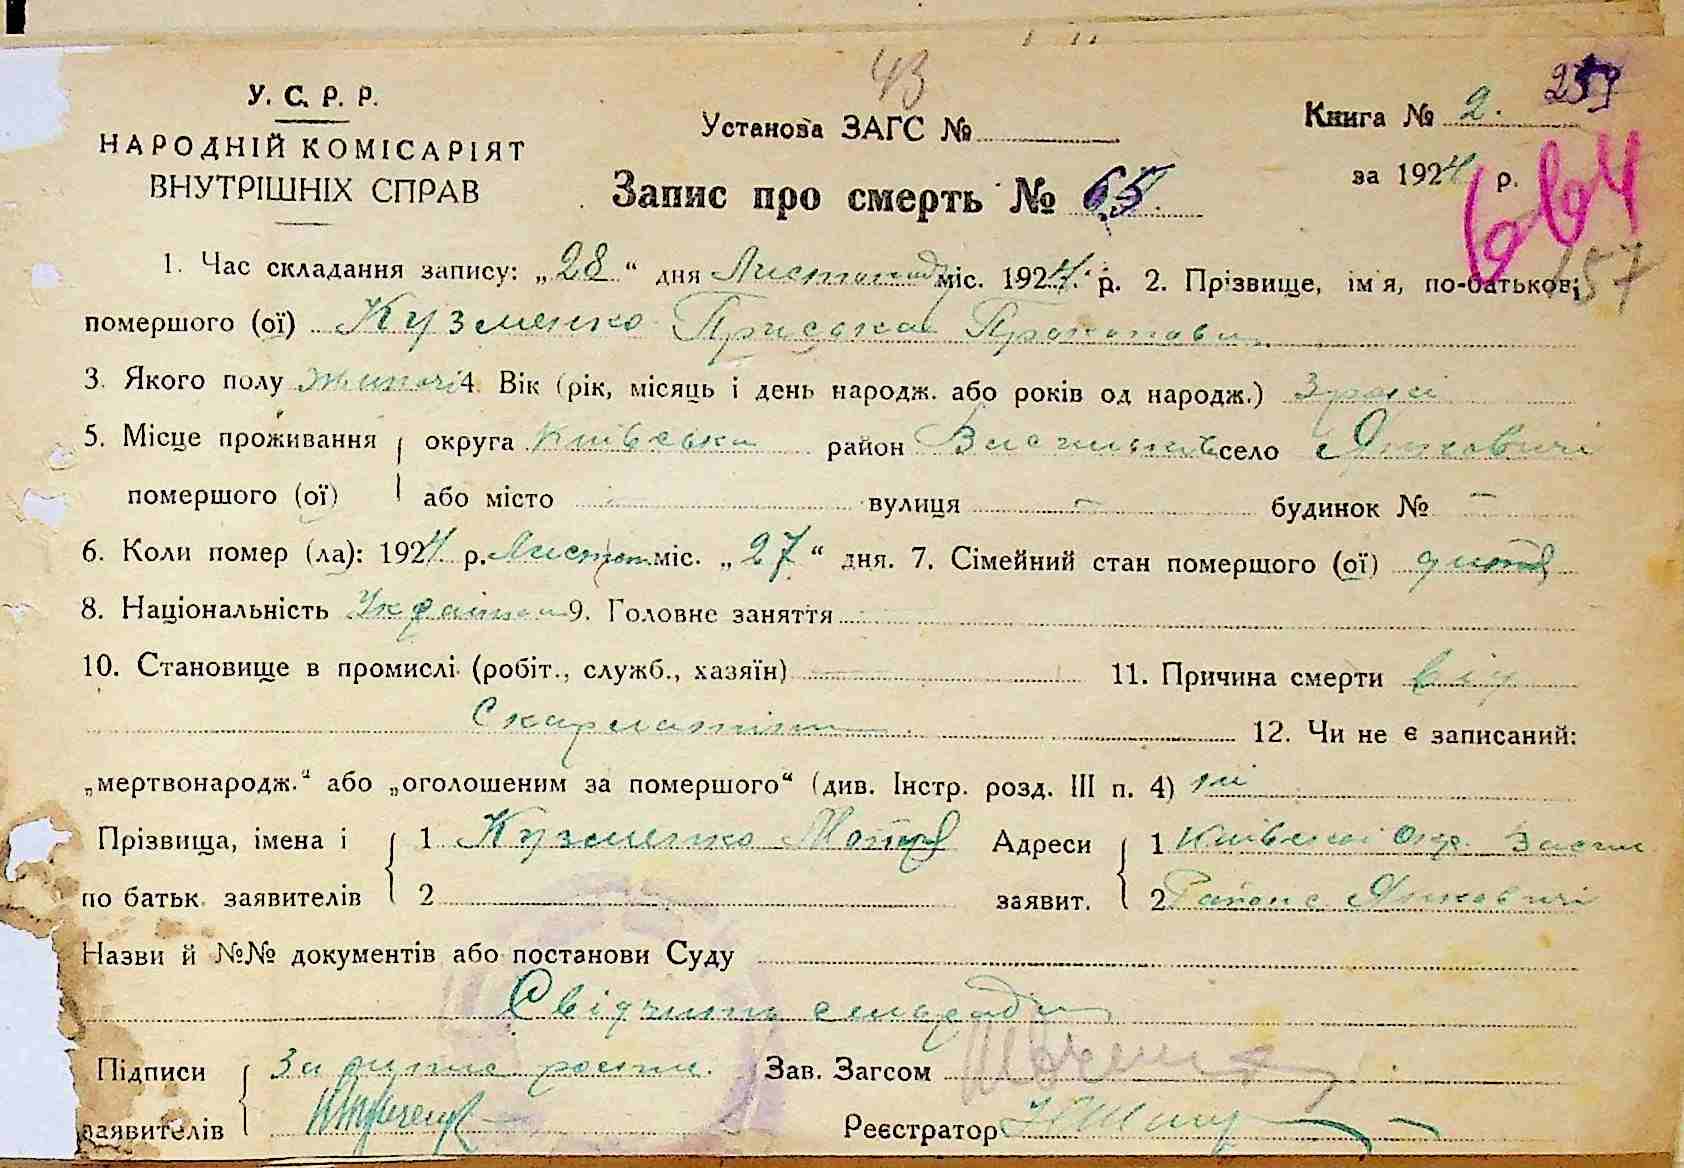 43
У. С. Р. Р.
НАРОДНІЙ КОМІСАРІЯТ
ВНУТРІШНІХ СПРАВ
Установа ЗАГС №
Запис про смерть № 65
Книга № 2. 259
за 1924 р.
664
157
1. Час складання запису: „28“ дня Листопад міс. 1924 р. 2. Прізвище, ім'я, по-батькові
помершого (ої) Кузменко Приська Прокопови
3. Якого полу жиночі 4. Вік (рік, місяць і день народж. або років од народж.) 3 рокі
5. Місце проживання округа Київська район Васильків село Янковичі
помершого (ої) або місто — вулиця — будинок № —
6. Коли помер (ла): 1924 р. Листоп міс. „27“ дня. 7. Сімейний стан помершого (ої) дитя
8. Національність Україн 9. Головне заняття
10. Становище в промислі (робіт., служб., хазяїн) 11. Причина смерти від
Скарлатіни
12. Чи не є записаний:
„мертвонародж.“ або „оголошеним за помершого“ (див. Інстр. розд. III п. 4) ні
Прізвища, імена і 1 Кузменко Мотря Адреси 1 Київської Окр. Васил
по батьк. заявителів 2 заявит. 2 Району Янковичі
Назви й №№ документів або постанови Суду
Свідчить сельради
Підписи За Зав. Загсом
заявителів Реєстратор